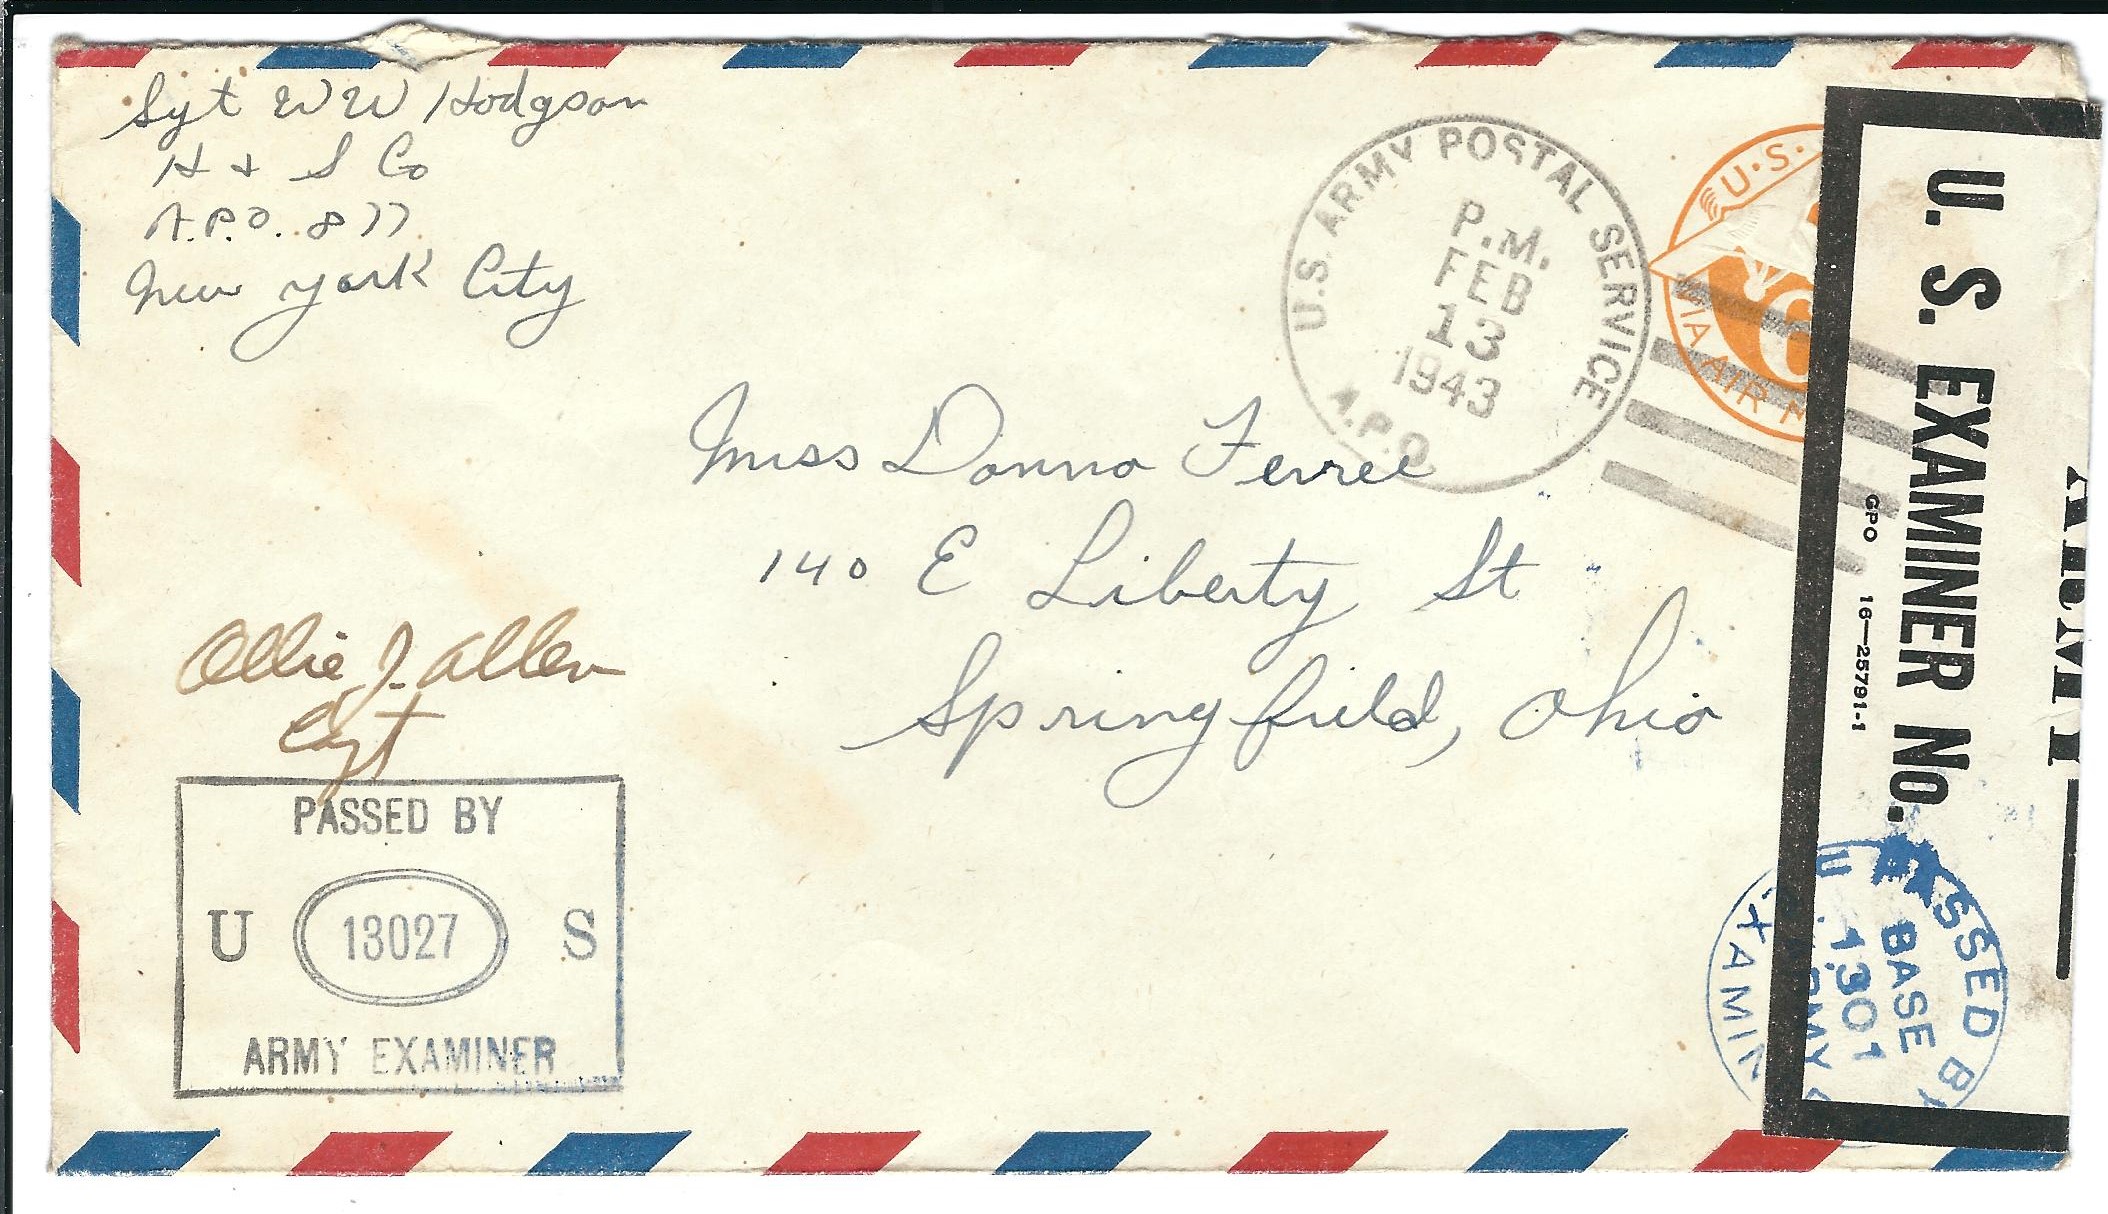 Sgt W W Hodgson
H + S Co
A.P.O. 877
New York City
U.S. ARMY POSTAL SERVICE
A.P.O
P.M.
FEB
13
1943
U.S.
6
VIA AIR M
Miss Donna Ferree
140 E Liberty St
Springfield, Ohio
Ollie J. Allen
Cpt
PASSED BY
U 13027 S
ARMY EXAMINER
U. S. EXAMINER No.
GPO 16—25791-1
ARMY
ASSED BY
BASE
1301
ARMY
EXAMIN